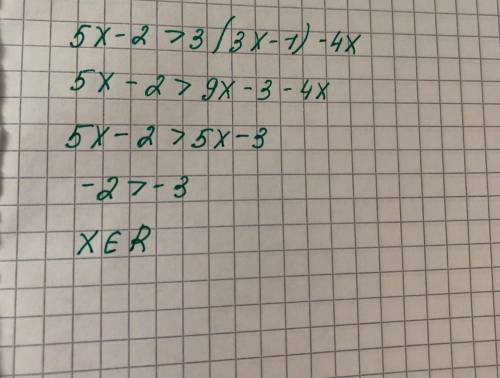 5x-2>3(3x-1)-4x
5x-2>9x-3-4x
5x-2>5x-3
-2>-3
x∈R